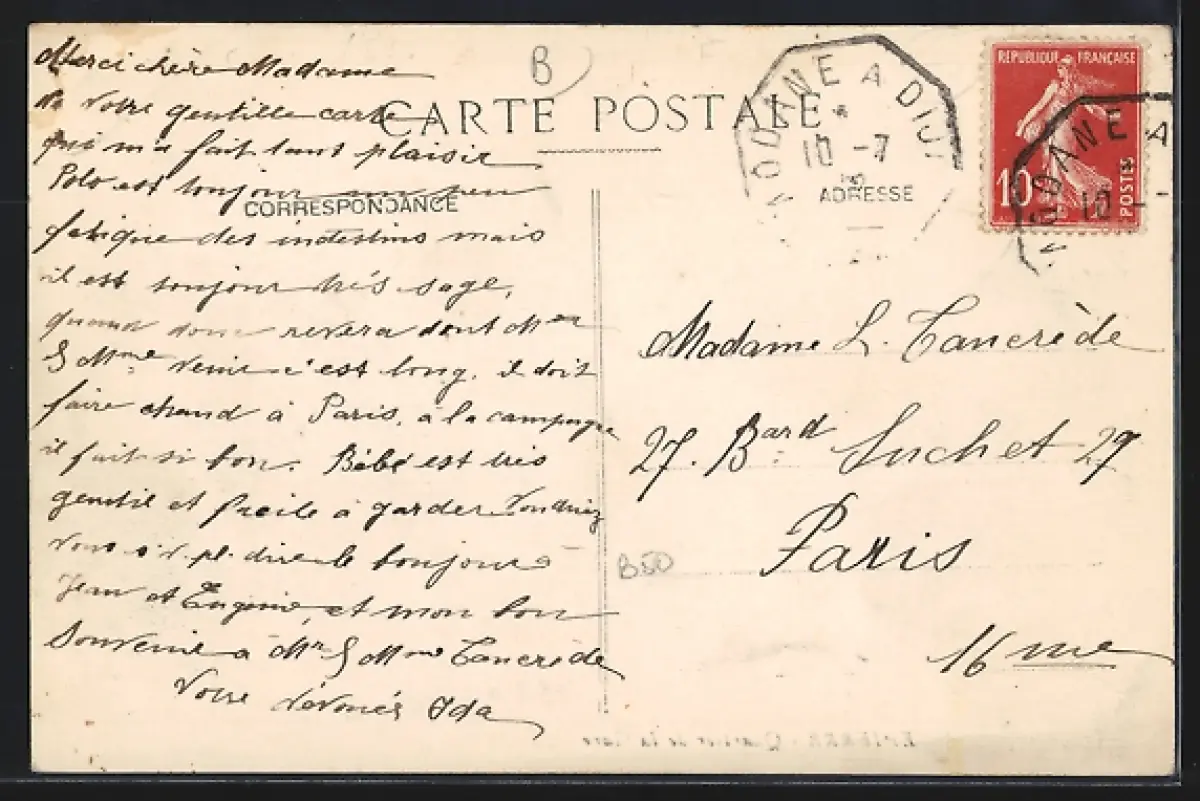 B
CARTE POSTALE
CORRESPONDANCE
ADRESSE
MODANE A DIJ
10 -7
REPUBLIQUE FRANÇAISE
10c
POSTES
ODANE A
10 -
Merci chère Madame
de votre gentille carte
qui m'a fait tant plaisir
Polo est toujour un peu
fatigue des intestins mais
il est toujour très sage,
quand donc revera dont Mr
& Mme venir c'est long, il doit
faire chaud à Paris, à la campagne
il fait si bon. Bébé est très
gentil et facile à garder. Voudriez
vous s'v. pl. dire le bonjour à
Jean et Eugénie, et mon bon
Souvenir a Mr & Mme Tancrède
Votre dévouée Ida
Madame L. Tancrède
27. Bard Suchet 27
Paris
16 me
B50
EPIERRE - Quartier de la Gare